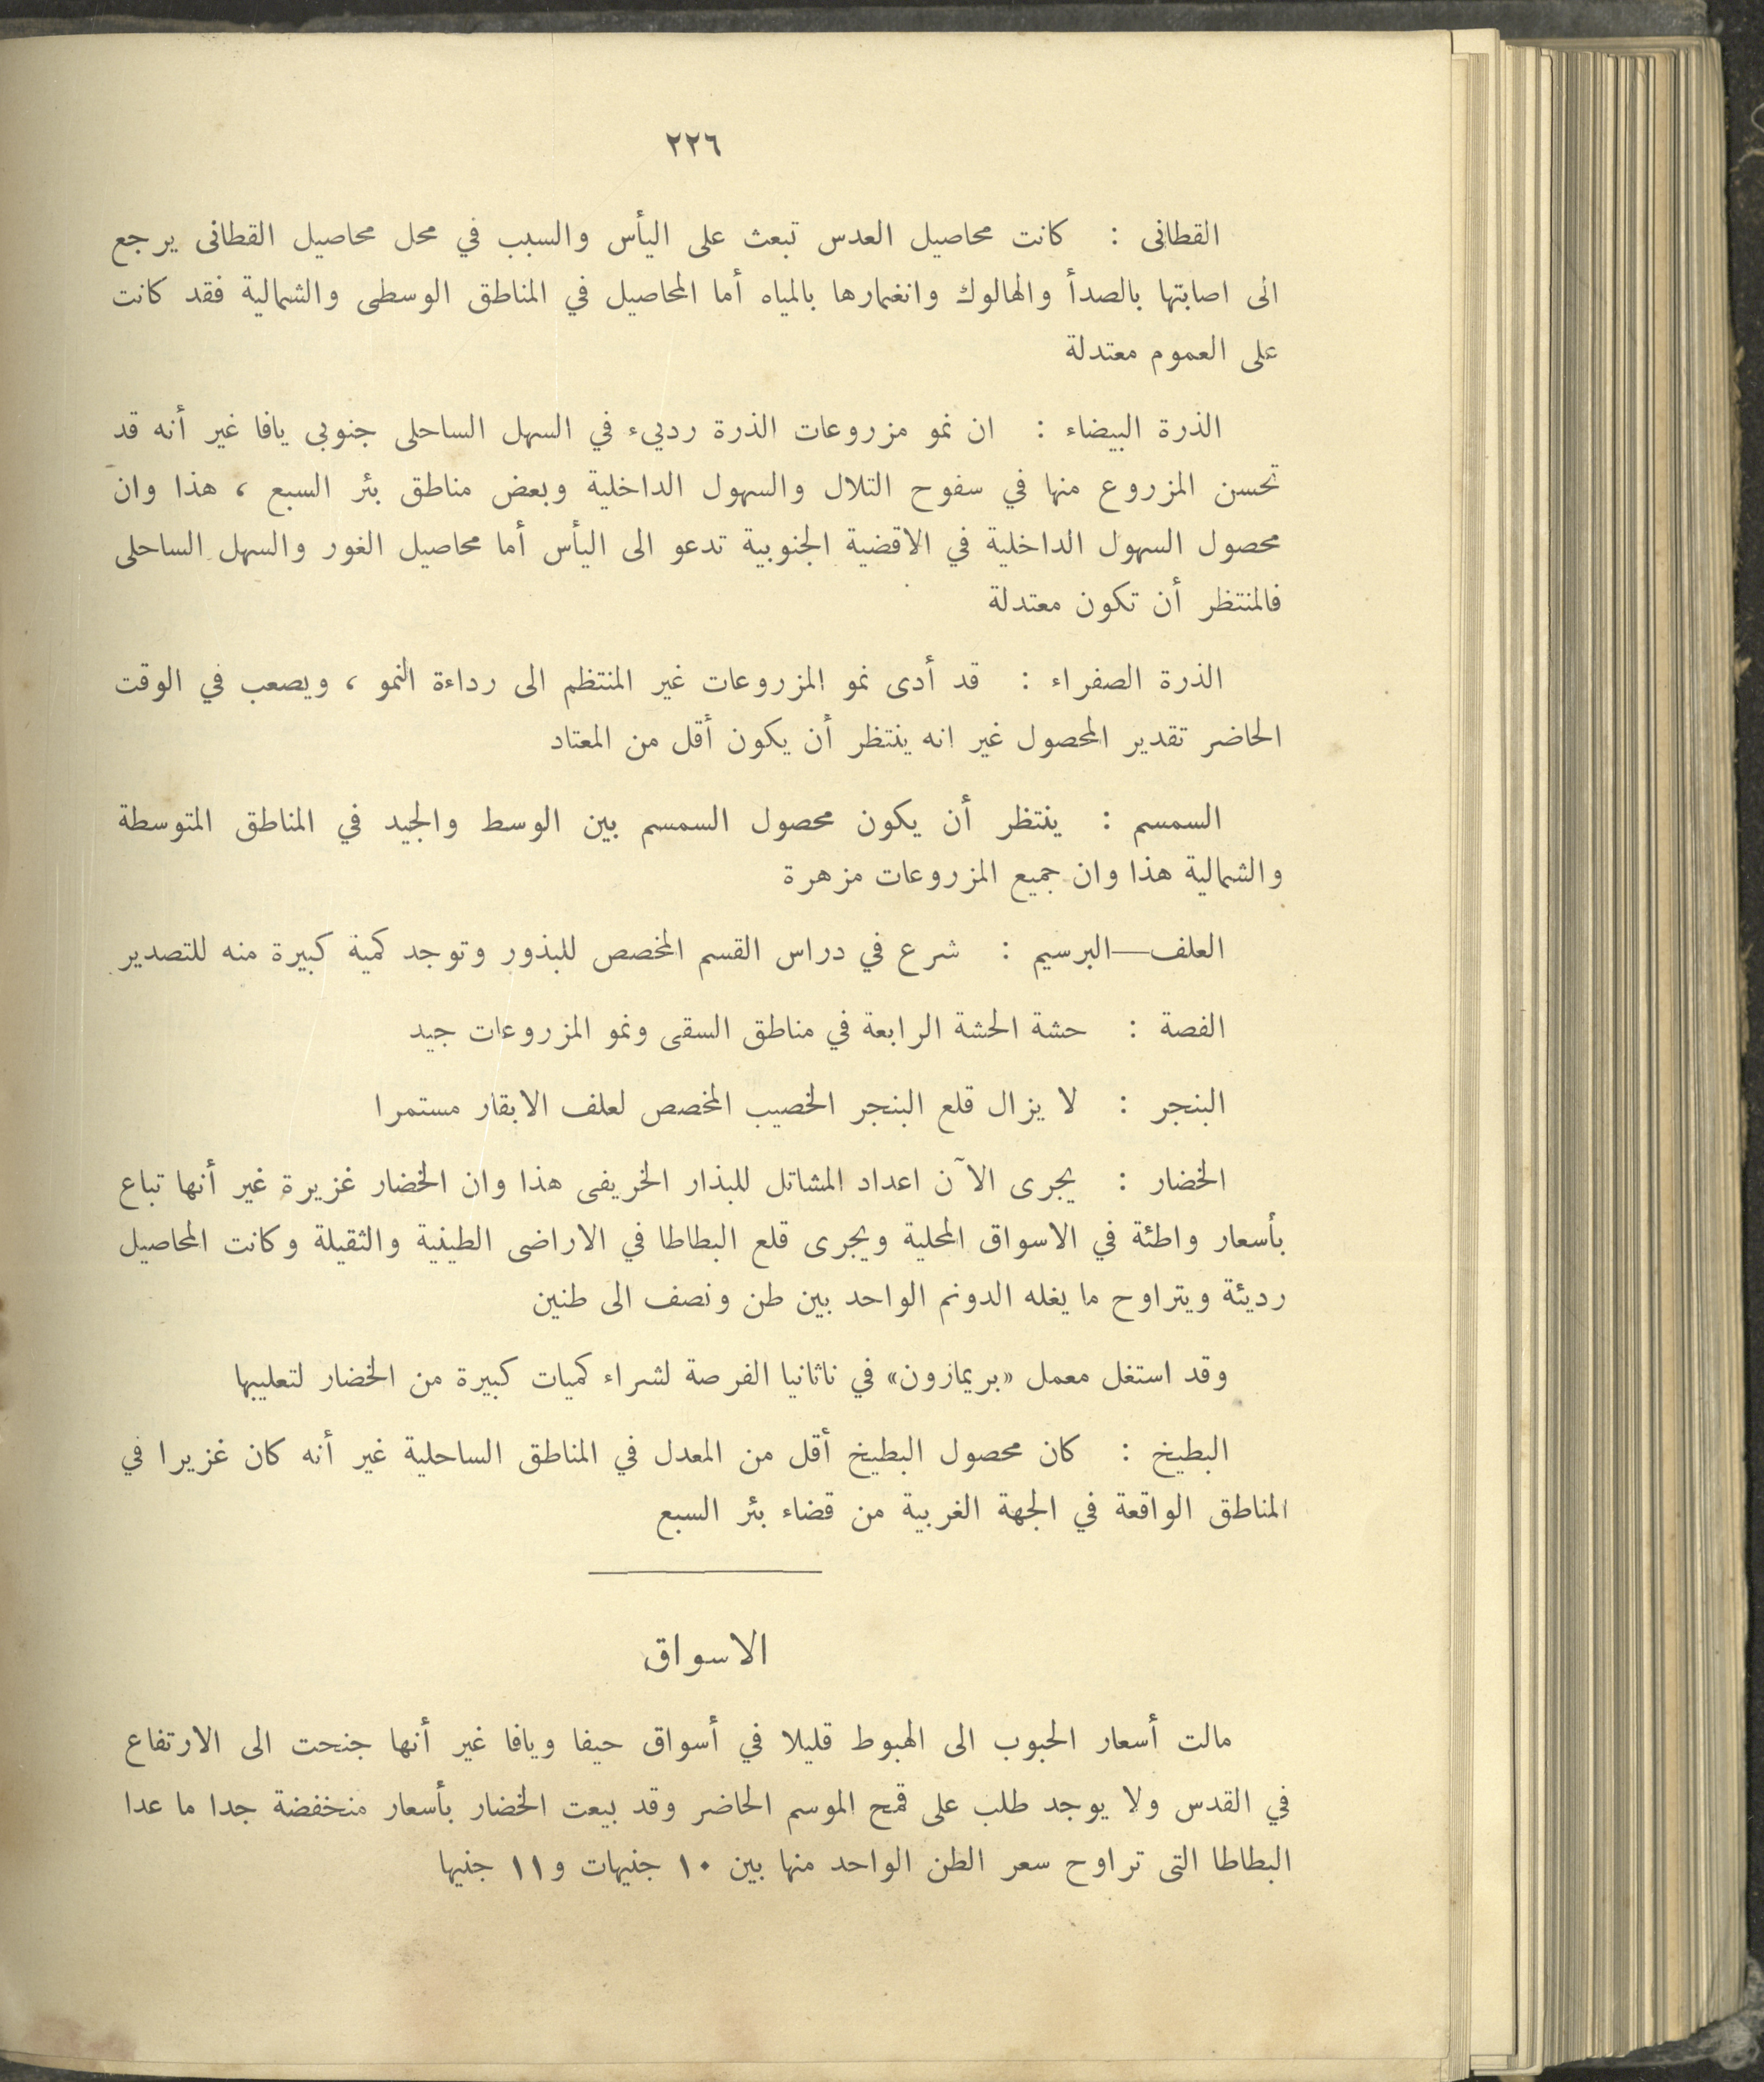 ٢٢٦
القطانى : كانت محاصيل العدس تبعث على اليأس والسبب في محل محاصيل القطانى يرجع
الى اصابتها بالصدأ والهالوك وانغمارها بالمياه أما المحاصيل في المناطق الوسطى والشمالية فقد كانت
على العموم معتدلة
الذرة البيضاء : ان نمو مزروعات الذرة رديء في السهل الساحلى جنوبى يافا غير أنه قد
تحسن المزروع منها في سفوح التلال والسهول الداخلية وبعض مناطق بئر السبع ، هذا وان
محصول السهول الداخلية في الاقضية الجنوبية تدعو الى اليأس أما محاصيل الغور والسهل الساحلى
فالمنتظر أن تكون معتدلة
الذرة الصفراء : قد أدى نمو المزروعات غير المنتظم الى رداءة النمو ، ويصعب في الوقت
الحاضر تقدير المحصول غير انه ينتظر أن يكون أقل من المعتاد
السمسم : ينتظر أن يكون محصول السمسم بين الوسط والجيد في المناطق المتوسطة
والشمالية هذا وان جميع المزروعات مزهرة
العلف—البرسيم : شرع في دراس القسم المخصص للبذور وتوجد كمية كبيرة منه للتصدير
الفصة : حشة الحشة الرابعة في مناطق السقى ونمو المزروعات جيد
البنجر : لا يزال قلع البنجر الخصيب المخصص لعلف الابقار مستمرا
الخضار : يجرى الآن اعداد المشاتل للبذار الخريفى هذا وان الخضار غزيرة غير أنها تباع
بأسعار واطئة في الاسواق المحلية ويجرى قلع البطاطا في الاراضى الطينية والثقيلة وكانت المحاصيل
رديئة ويتراوح ما يغله الدونم الواحد بين طن ونصف الى طنين
وقد استغل معمل «بريمازون» في ناثانيا الفرصة لشراء كميات كبيرة من الخضار لتعليبها
البطيخ : كان محصول البطيخ أقل من المعدل في المناطق الساحلية غير أنه كان غزيرا في
المناطق الواقعة في الجهة الغربية من قضاء بئر السبع
الاسواق
مالت أسعار الحبوب الى الهبوط قليلا في أسواق حيفا ويافا غير أنها جنحت الى الارتفاع
في القدس ولا يوجد طلب على قمح الموسم الحاضر وقد بيعت الخضار بأسعار منخفضة جدا ما عدا
البطاطا التى تراوح سعر الطن الواحد منها بين ١٠ جنيهات و١١ جنيها